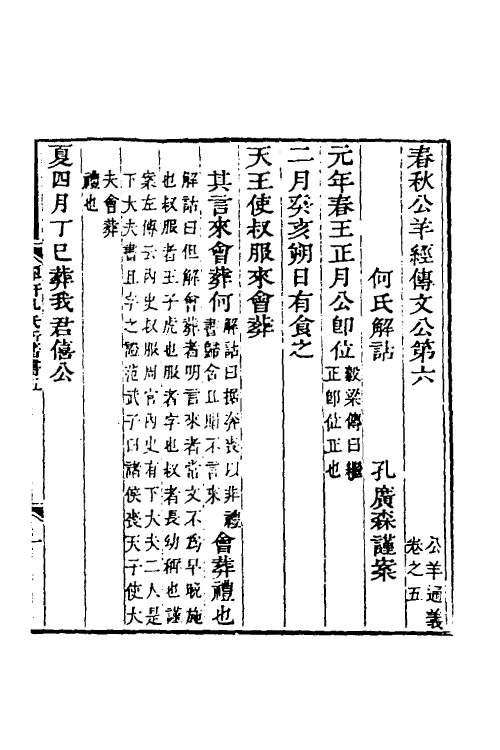 春秋公羊經傳文公第六
公羊通義
卷之五
何氏解詁
孔廣森謹案
元年春王正月公即位
穀梁傳曰繼
正即位正也
二月癸亥朔日有食之
天王使叔服來會葬
其言來會葬何
解詁曰據奔喪以非禮
書歸含且賵不言來
會葬禮也
解詁曰但解會葬者明言來者常文不爲早晚施
也叔服者王子虎也服者字也叔者長幼稱也謹
案左傳云內史叔服周官內史有下大夫二人是
下大夫書且字之證范武子曰諸侯喪天子使大
夫會葬
禮也
夏四月丁巳葬我君僖公